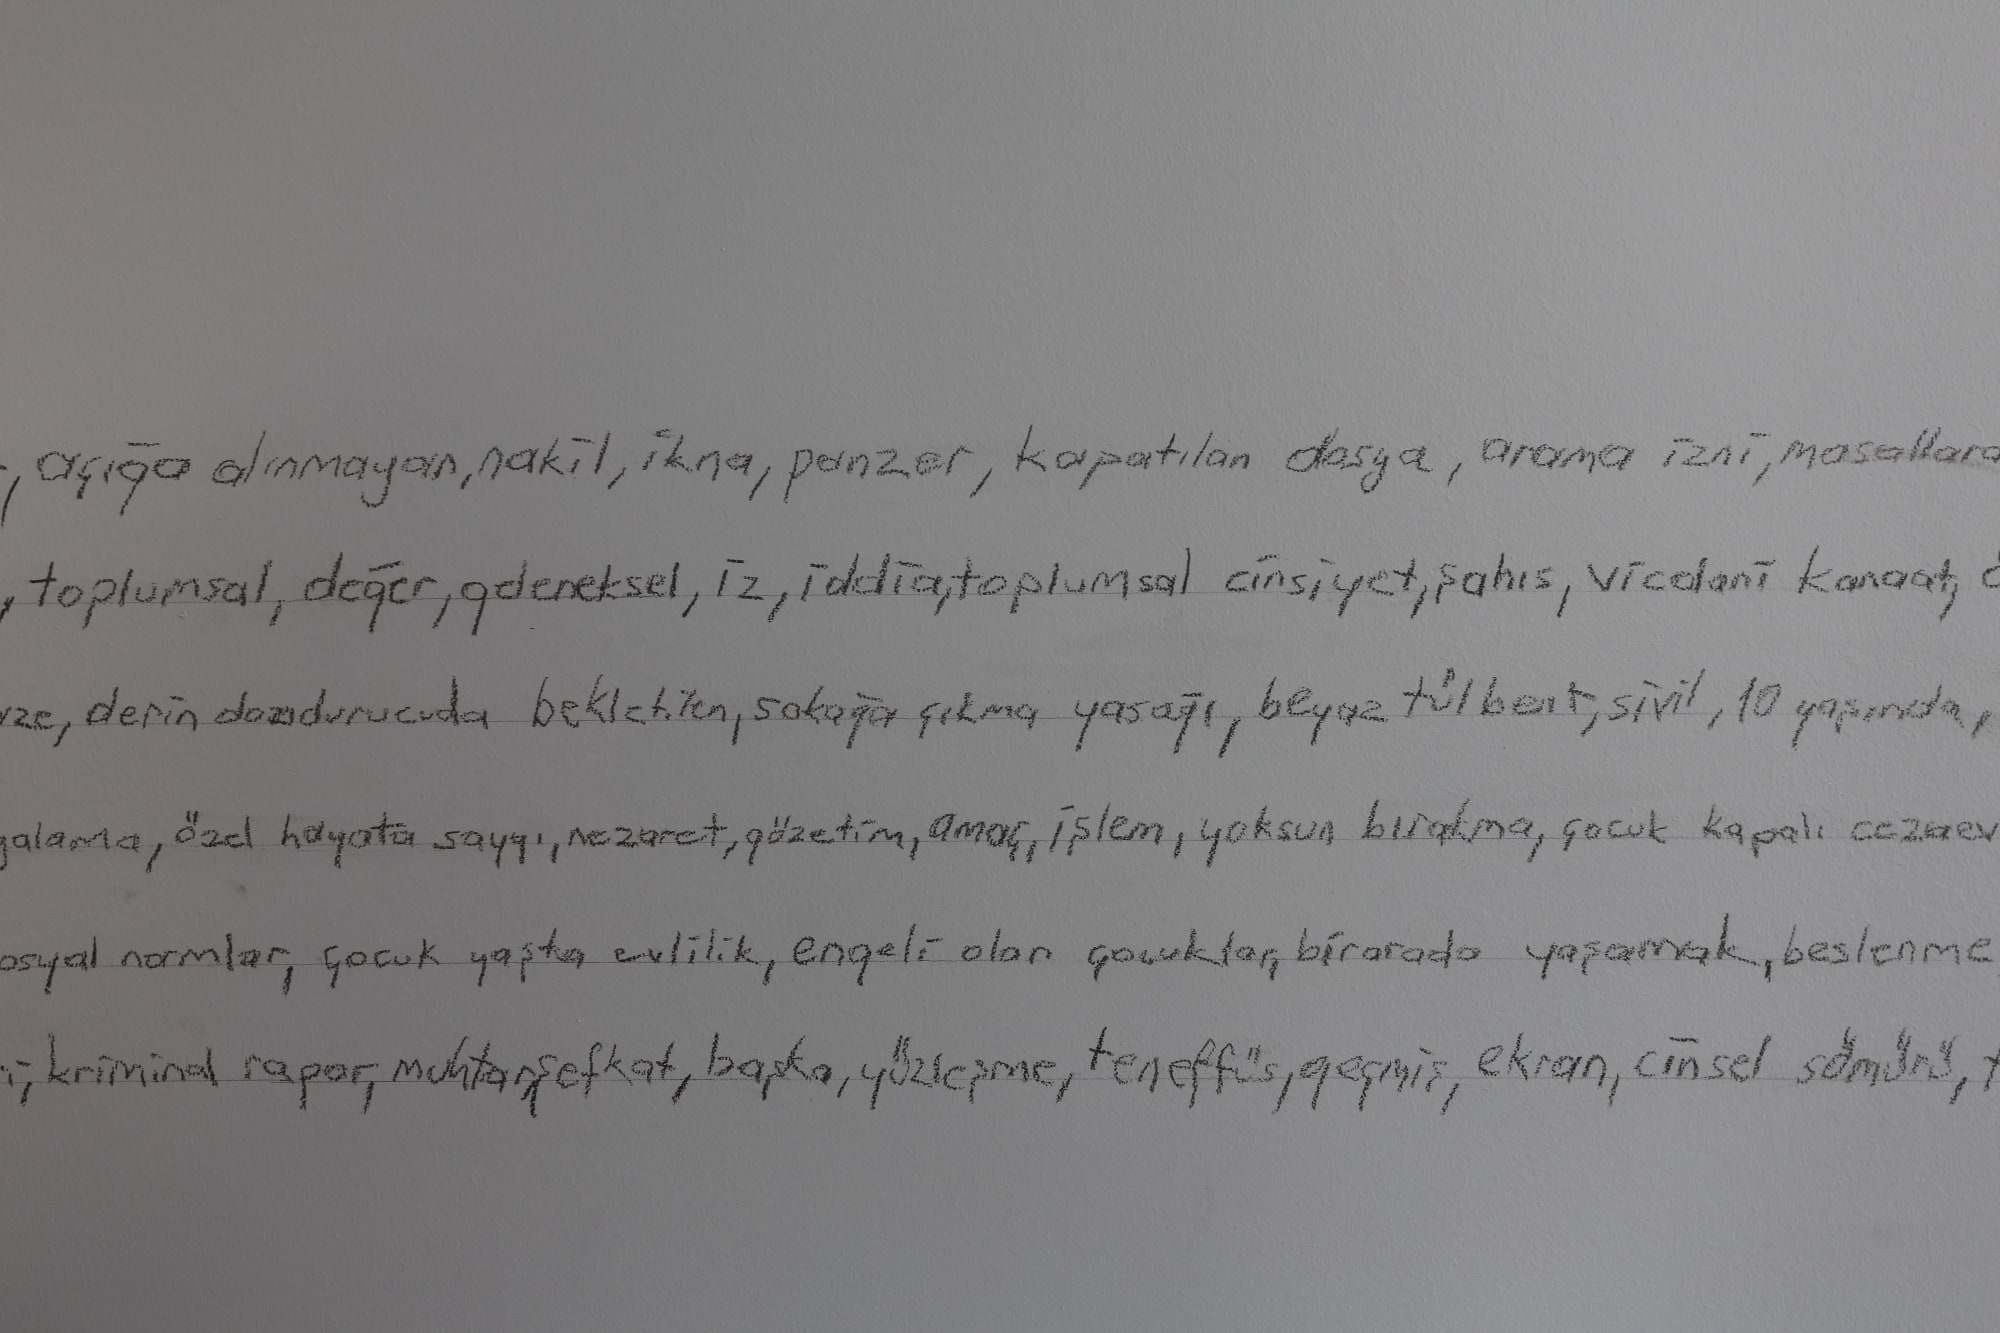 , açığa alınmayan, nakil, ikna, panzer, kapatılan dosya, arama izni, masallara
, toplumsal, değer, gdeneksel, iz, iddia, toplumsal cinsiyet, şahıs, vicdani kanaat,
rze, derin dozdurucuda bekletilen, sokağa çıkma yasağı, beyaz tülbent, sivil, 10 yaşında,
galama, özel hayata saygı, nezaret, gözetim, amaç, işlem, yoksun bırakma, çocuk kapalı cezaev
osyal normlar, çocuk yaşta evlilik, engeli olan çocuklar, birarada yaşamak, beslenme,
i, kriminal rapor, muhtar, şefkat, başka, yüzleşme, teneffüs, geçmiş, ekran, cinsel sömürü, t